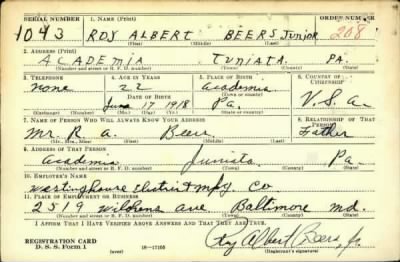 SERIAL NUMBER 1. NAME (Print) ORDER NUMBER
1043 ROY ALBERT BEERS Junior 208
(First) (Middle) (Last)
2. ADDRESS (Print)
ACADEMIA JUNIATA PA.
(Number and street or R. F. D. number) (Town) (County) (State)
3. TELEPHONE 4. AGE IN YEARS 5. PLACE OF BIRTH 6. COUNTRY OF CITIZENSHIP
none 22 Academia U. S. A.
DATE OF BIRTH (Town or county)
June 17 1918 Pa.
(Mo.) (Day) (Yr.) (State or country)
7. NAME OF PERSON WHO WILL ALWAYS KNOW YOUR ADDRESS 8. RELATIONSHIP OF THAT PERSON
Mr. R. A. Beers Father
(Mr., Mrs., Miss) (First) (Middle) (Last)
9. ADDRESS OF THAT PERSON
Academia Juniata Pa
(Number and street or R. F. D. number) (Town) (County) (State)
10. EMPLOYER'S NAME
Westinghouse Electric & Mfg. Co
11. PLACE OF EMPLOYMENT OR BUSINESS
2519 Wilkens Ave Baltimore Md.
(Number and street or R. F. D. number) (Town) (County) (State)
I AFFIRM THAT I HAVE VERIFIED ABOVE ANSWERS AND THAT THEY ARE TRUE.
REGISTRATION CARD
D. S. S. Form 1 (over) 16—17105 Roy Albert Beers, Jr.
(Registrant's signature)